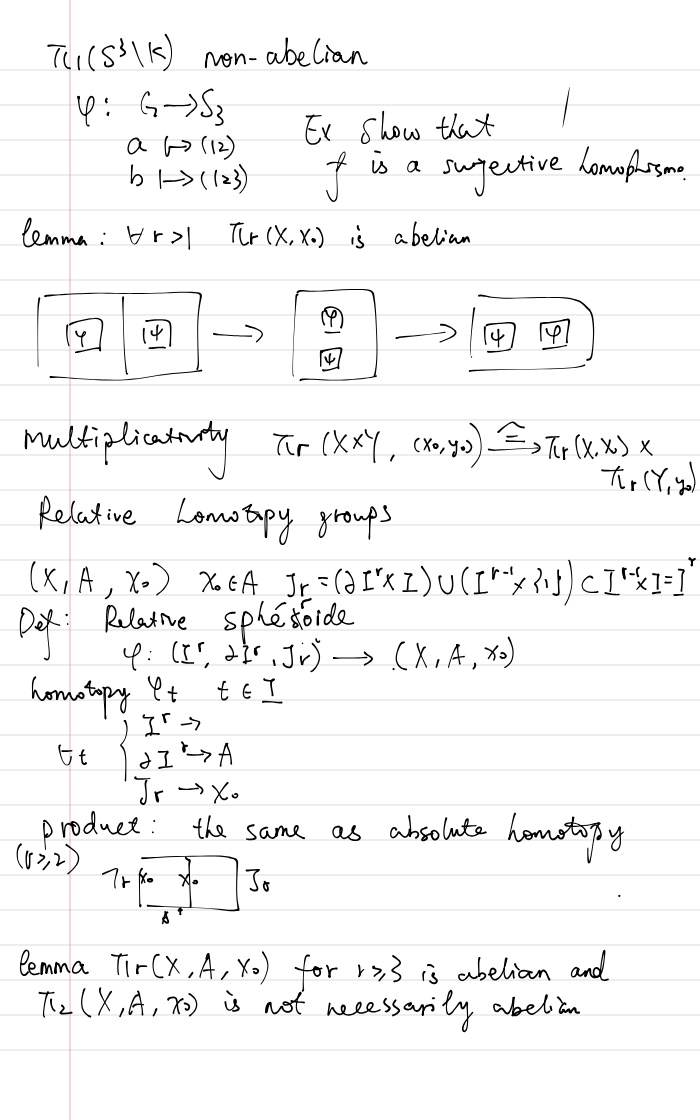 π₁(S³\K) non-abelian
φ: G → S₃
a ↦ (12)
b ↦ (123)
Ex Show that
f is a surjective homophisme.
lemma: ∀ r>1 πr(X,x₀) is abelian
φ ψ → φ ψ → ψ φ
Multiplicativity πr(X×Y, (x₀,y₀)) ≅→ πr(X,x₀) ×
πr(Y,y₀)
Relative homotopy groups
(X, A, x₀) x₀∈A Jr = (∂Iʳ×I)∪(Iʳ⁻¹×{1}) ⊂ Iʳ⁻¹×I=Iʳ
Def: Relative sphéroïde
φ: (Iʳ, ∂Iʳ, Jr) → (X, A, x₀)
homotopy φt t ∈ I
∀t { Iʳ →
∂Iʳ → A
Jr → x₀
product: the same as absolute homotopy
(r≥2)
x₀ x₀
A
lemma πr(X,A,x₀) for r≥3 is abelian and
π₂(X,A,x₀) is not necessarily abelian